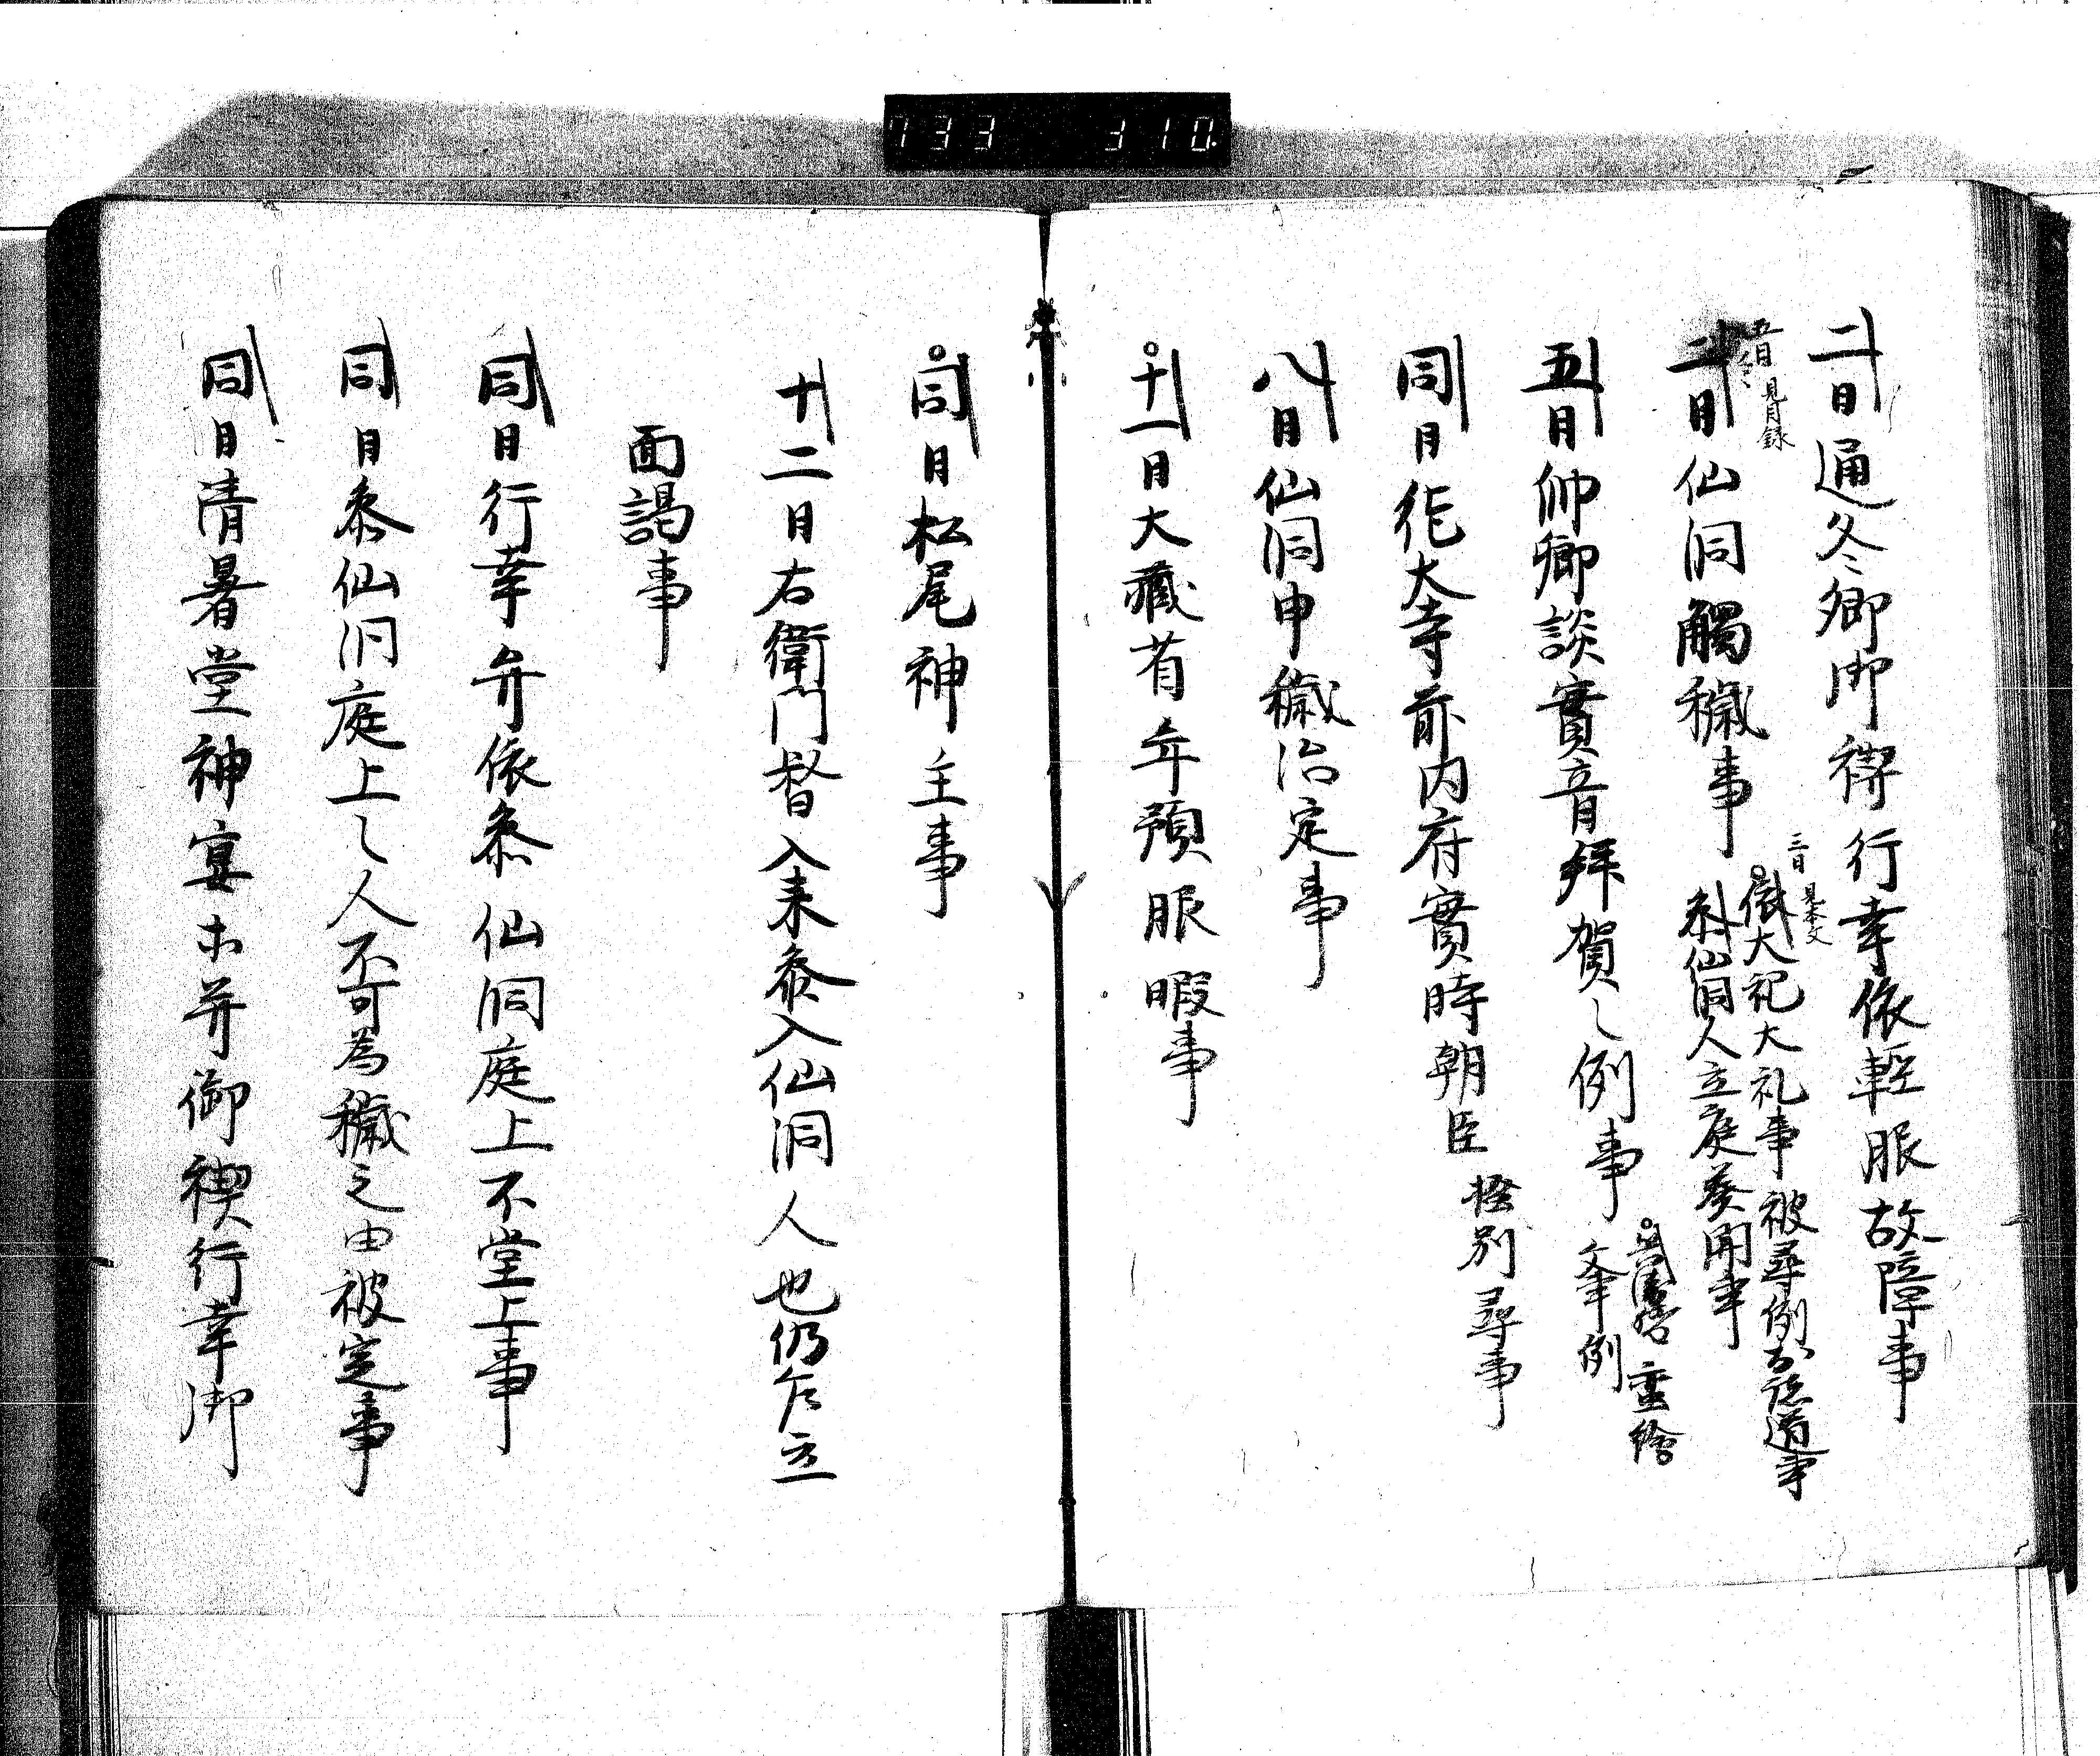 733 310.
二日通冬卿御禊行幸依軽服故障事
五日 見目録
二日仙洞觸穢事
三日 見本文
依大祀大礼事被尋例於諸道事
参仙洞人立庭奏聞事
五日帥卿談實音拜賀之例事
文筆例
重繪
同日徳大寺前内府實時朝臣
撥別尋事
八日仙洞申穢治定事
十一日大藏省年預服暇事
同日松尾神主事
十二日右衛門督入来参入仙洞人也仍乍立
面謁事
同日行幸弁依参仙洞庭上不堂上事
同日参仙洞庭上之人不可為穢之由被定事
同日清暑堂神宴本并御禊行幸御